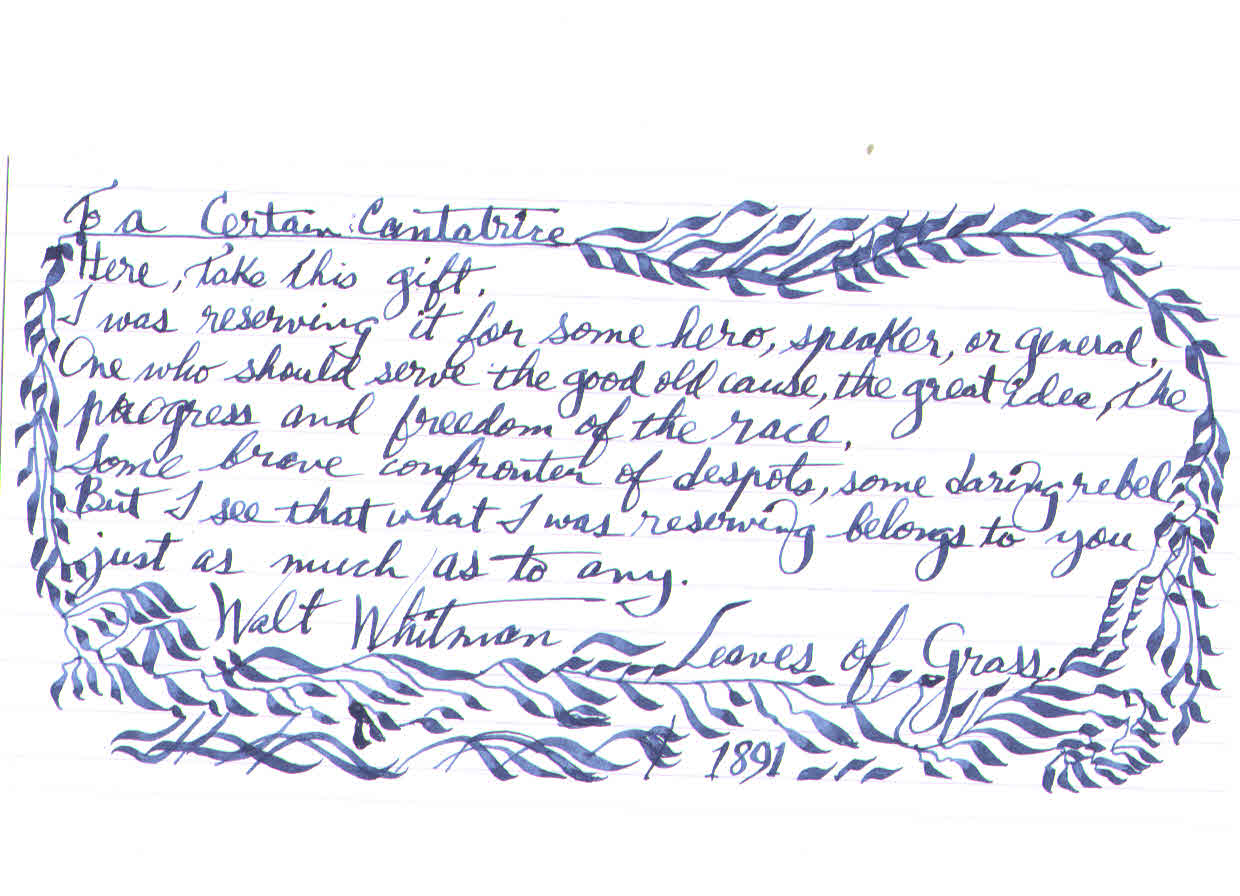 To a Certain Cantabtrice
Here, take this gift,
I was reserving it for some hero, speaker, or general,
One who should serve the good old cause, the great idea, the
progress and freedom of the race,
Some brave confronter of despots, some daring rebel,
But I see that what I was reserving belongs to you
just as much as to any.
Walt Whitman Leaves of Grass,
1891